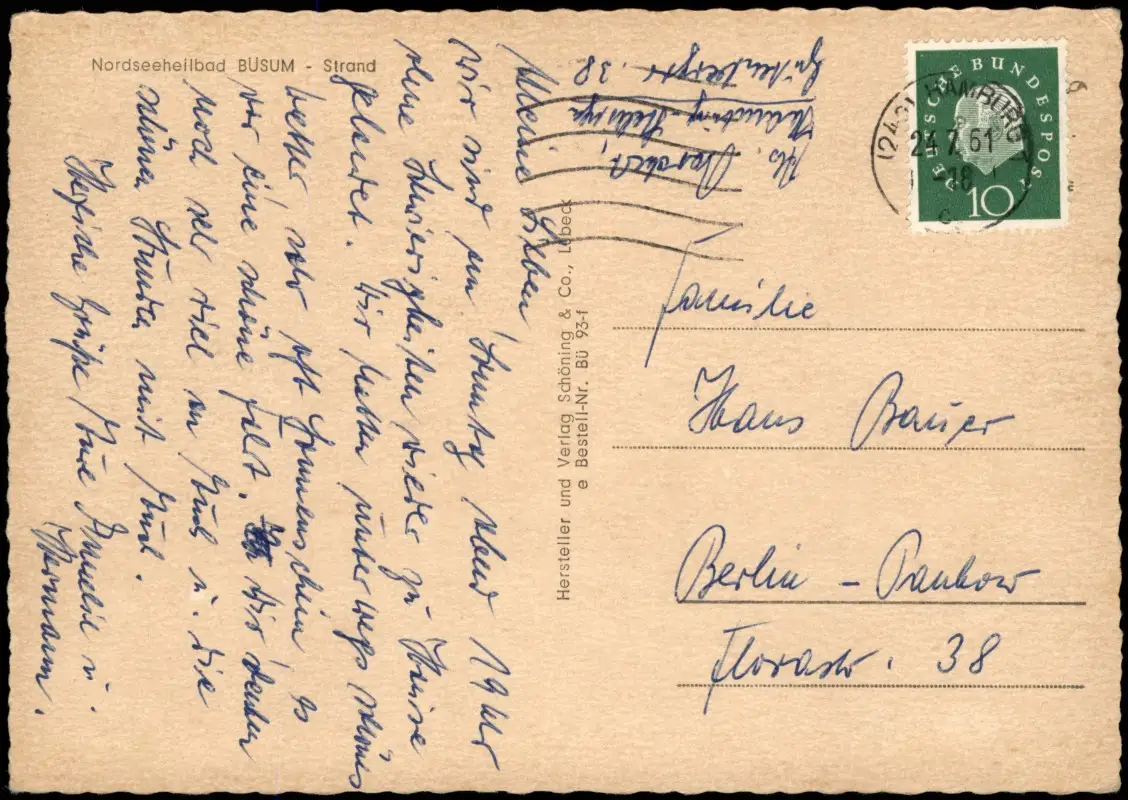 Nordseeheilbad BÜSUM - Strand
Meine Lieben!
wir sind am Sonntag abend 19 Uhr
ohne Schwierigkeiten wieder zu Hause
gelandet. Wir hatten unterwegs schönes
Wetter sehr oft Sonnenschein, es
war eine schöne Fahrt. Wir denken
noch sehr viel an Euch u. die
schönen Stunden mit Euch.
Herzliche Grüße Eure u.
Hermann.
Abs.
Gutenbergstr. 38
Hersteller und Verlag Schöning & Co., Lübeck
e Bestell-Nr. BÜ 93-f
DEUTSCHE BUNDESPOST
10
HAMBURG
24.7.61-18
c
Familie
Hans Bauer
Berlin - Pankow
Florastr. 38